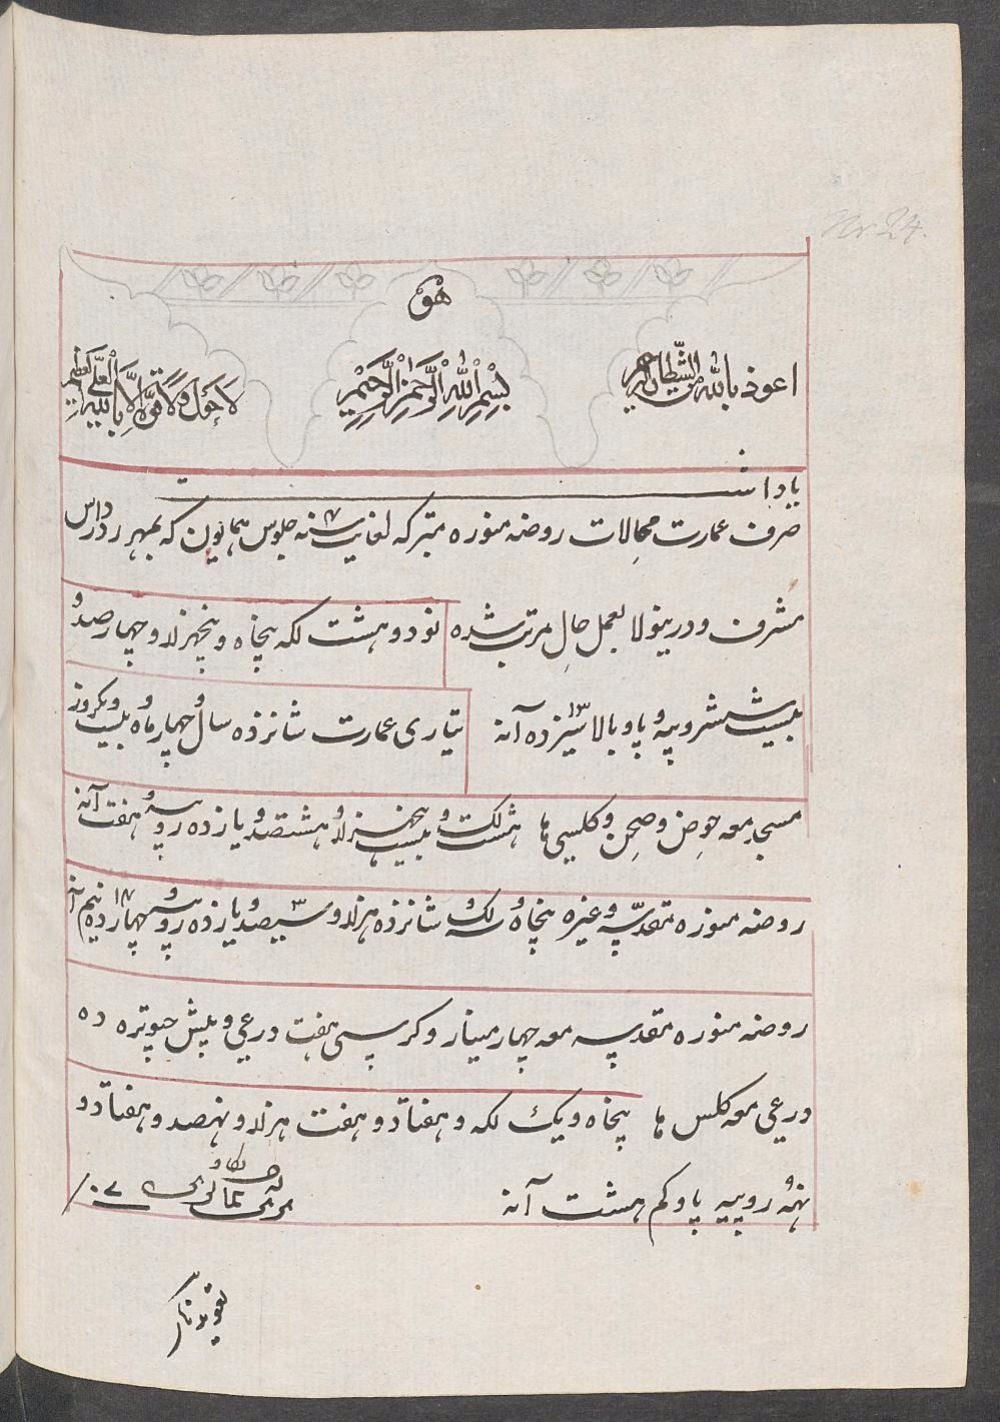 Nr 24.
هو
اعوذ بالله من الشیطان الرجیم
بِسْمِ اللهِ الرَّحْمٰنِ الرَّحِیْمِ
لَا حَوْلَ وَلَا قُوَّةَ اِلَّا بِاللهِ الْعَلِیِّ الْعَظِیْمِ
یاداشت
صرف عمارت محالات روضه منوره متبرکه لغایت سنه ۱۷ جلوس همایون که بمهر ردرداس
مشرف و درینولا بعمل حال مرتب شده نود و هشت لکه پنجاه و پنجهزار و چهار صد و
بیست شش روپیه و پاو بالا ۱۳ سیزده آنه تیاری عمارت شانزده سال و چهار ماه و بیست و یکروز
مسجد معه حوض و صحن و کلسی ها هشت لک و بیست پنجهزار و هشتصد و یازده روپیه و هفت آنه
روضه منوره مقدسه وغیره پنجاه و سه لک و شانزده هزار و سیصد و یازده روپیه و چهارده نیم آنه
روضه منوره مقدسه معه چهار مینار و کرسی هفت درعی و پیش چبوتره ده
درعی معه کلس ها پنجاه و یک لکه و هفتاد و هفت هزار و نهصد و هفتاد و
نهه روپیه پاو کم هشت آنه